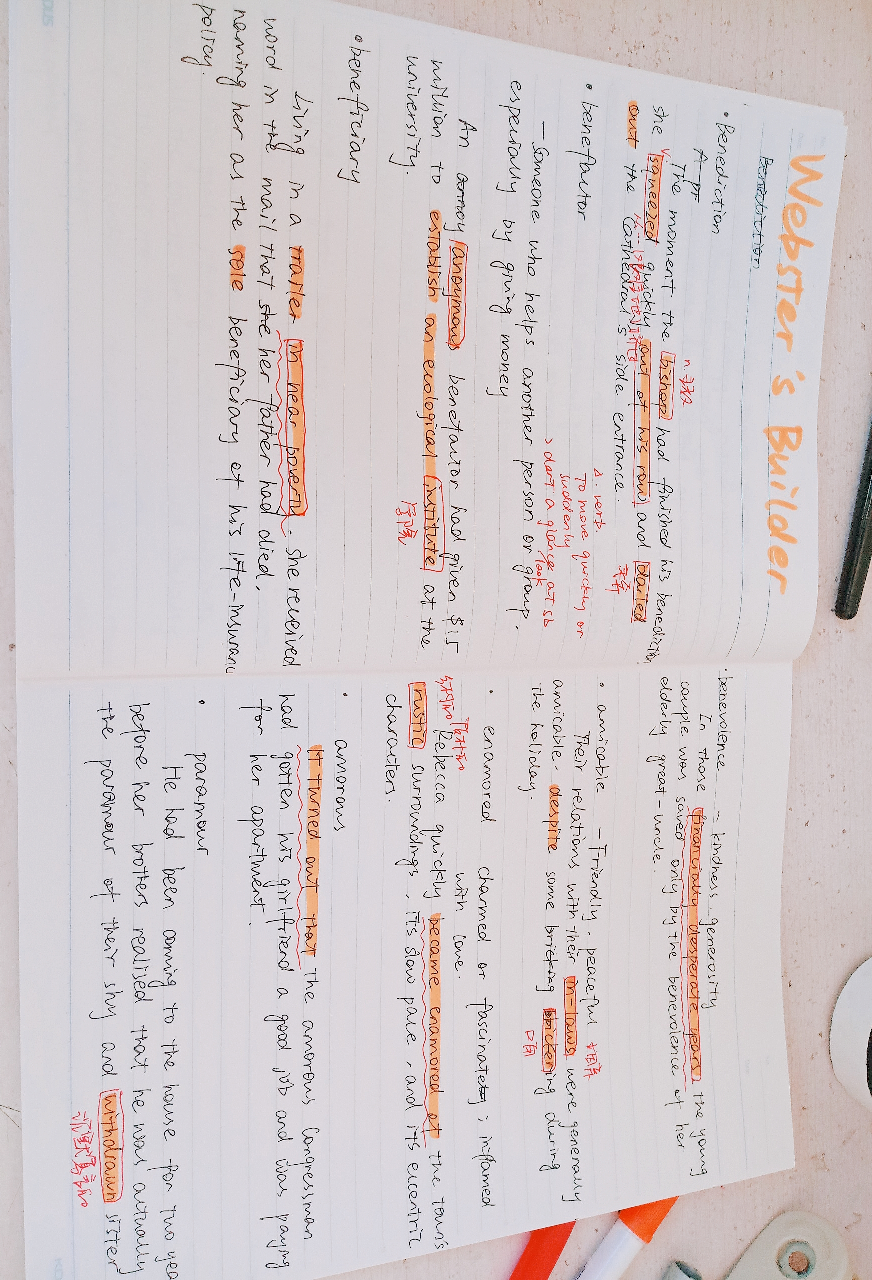 Webster's Builder
Benediction
• Benediction
A pr
The moment the bishop had finished his benediction
n. 主教
she squeezed quickly out of his row and darted
v.
out the cathedral's side entrance.
飞奔
△. verb.
To move quickly or
suddenly
> dart a glance at sb
look
• benefactor
– someone who helps another person or group,
especially by giving money
An anonymous benefactor had given $15
million to establish an ecological institute at the
学院
university.
• beneficiary
Living in a trailer in near poverty. She received
word in the mail that she her father had died,
naming her as the sole beneficiary of his life-insuranc
policy.
• benevolence – kindness generosity
In those financially desperate years, the young
couple was saved only by the benevolence of her
elderly great-uncle.
• amicable – Friendly. peaceful
Their relations with their in-laws were generally
姻亲
amicable. despite some bickering during
口角
the holiday.
• enamored charmed or fascinated; inflamed
with love.
Rebecca quickly became enamored of the town's
rustic surroundings, its slow pace, and its eccentric
characters.
• amorous
It turned out that the amorous congressman
had gotten his girlfriend a good job and was paying
for her apartment.
• paramour
He had been coming to the house for two yea
before her brothers realised that he was actually
the paramour of their shy and withdrawn sister
沉默寡言的